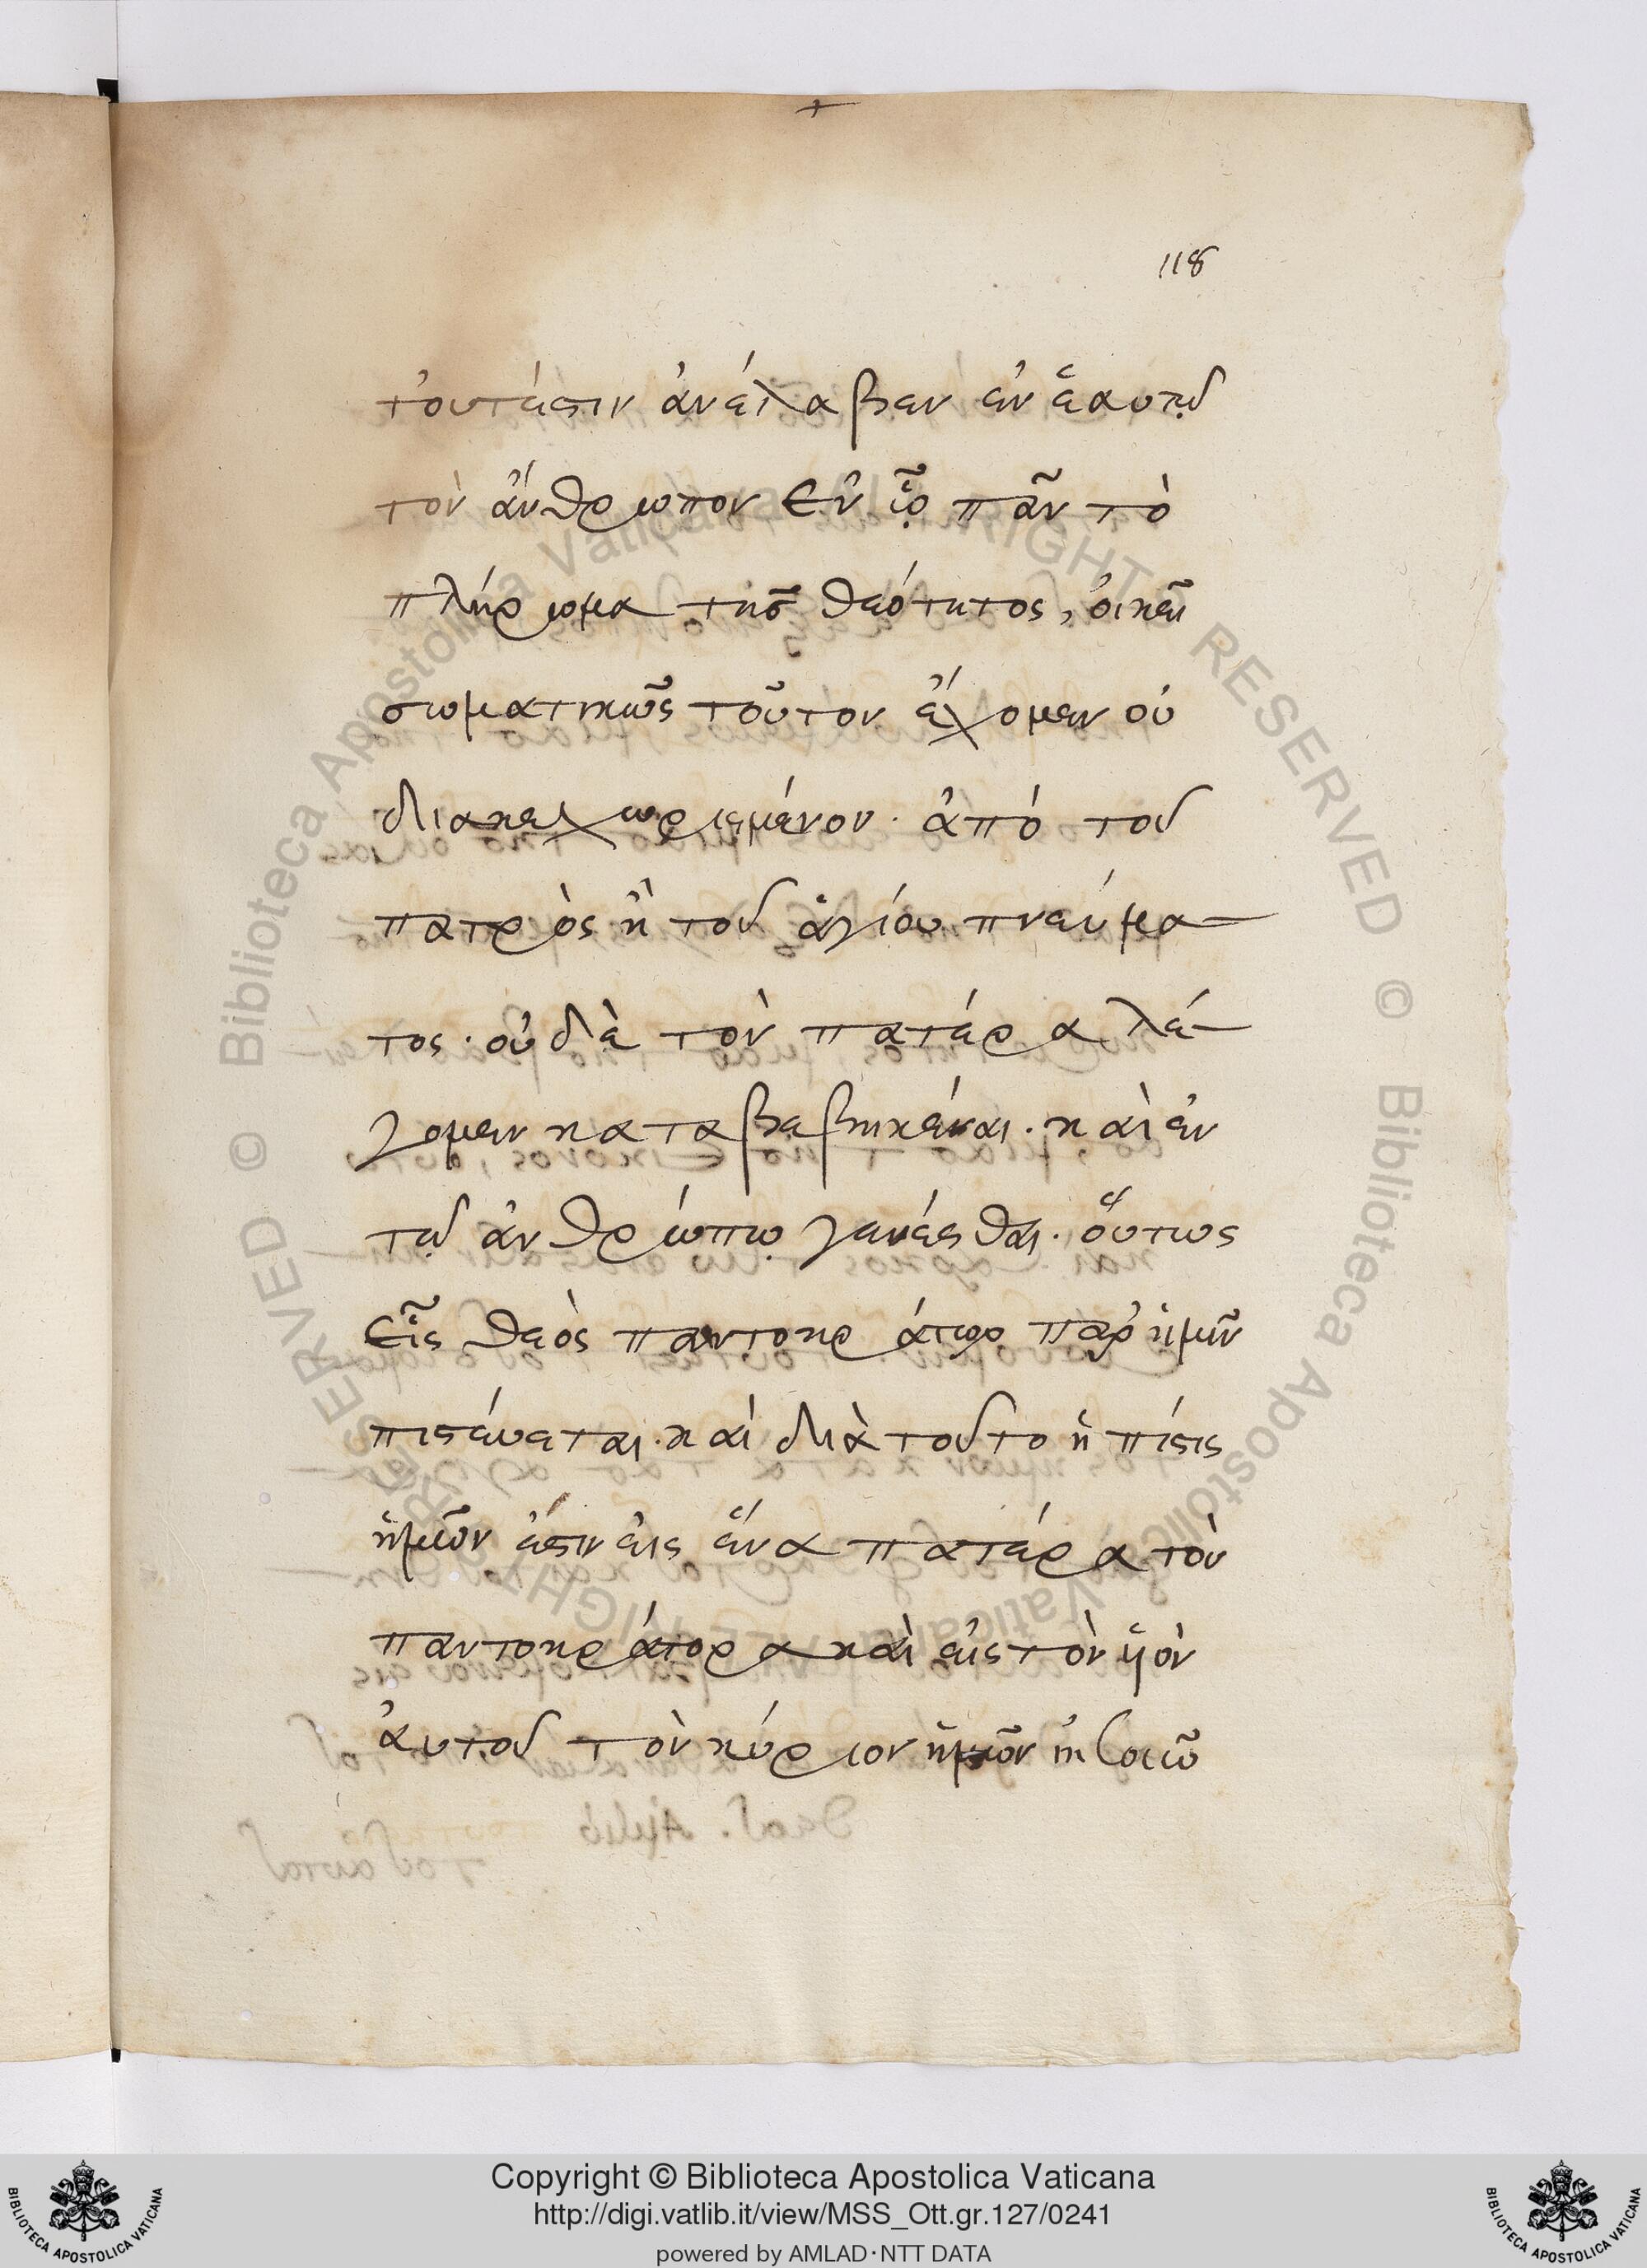 118
τουτέστιν ἀνέλαβεν ἐν ἑαυτῷ
τὸν ἄνθρωπον ἐν ᾧ πᾶν τὸ
πλήρωμα τῆσ θεότητος, οἰκεῖ
σωματικῶς τοῦτον ἔχομεν οὐ
διακεχωρισμένον. ἀπὸ τοῦ
πατρὸς ἢ τοῦ ἁγίου πνεύμα-
τος. οὐδὲ τὸν πατέρα λέ-
γομεν καταβεβηκέναι. καὶ ἐν
τῷ ἀνθρώπῳ γενέσθαι. οὕτως
εἷς θεὸς παντοκράτωρ παρ' ἡμῖν
πιστεύεται. καὶ διὰ τοῦτο ἡ πίστις
ἡμῶν ἐστιν εἰς ἕνα πατέρα τὸν
παντοκράτορα καὶ εἰς τὸν ὑὸν
αὐτοῦ τὸν κύριον ἡμῶν ἰησοῦν
© Biblioteca Apostolica Vaticana ALL RIGHTS RESERVED
Copyright © Biblioteca Apostolica Vaticana
http://digi.vatlib.it/view/MSS_Ott.gr.127/0241
powered by AMLAD·NTT DATA
BIBLIOTECA APOSTOLICA VATICANA
BIBLIOTECA APOSTOLICA VATICANA